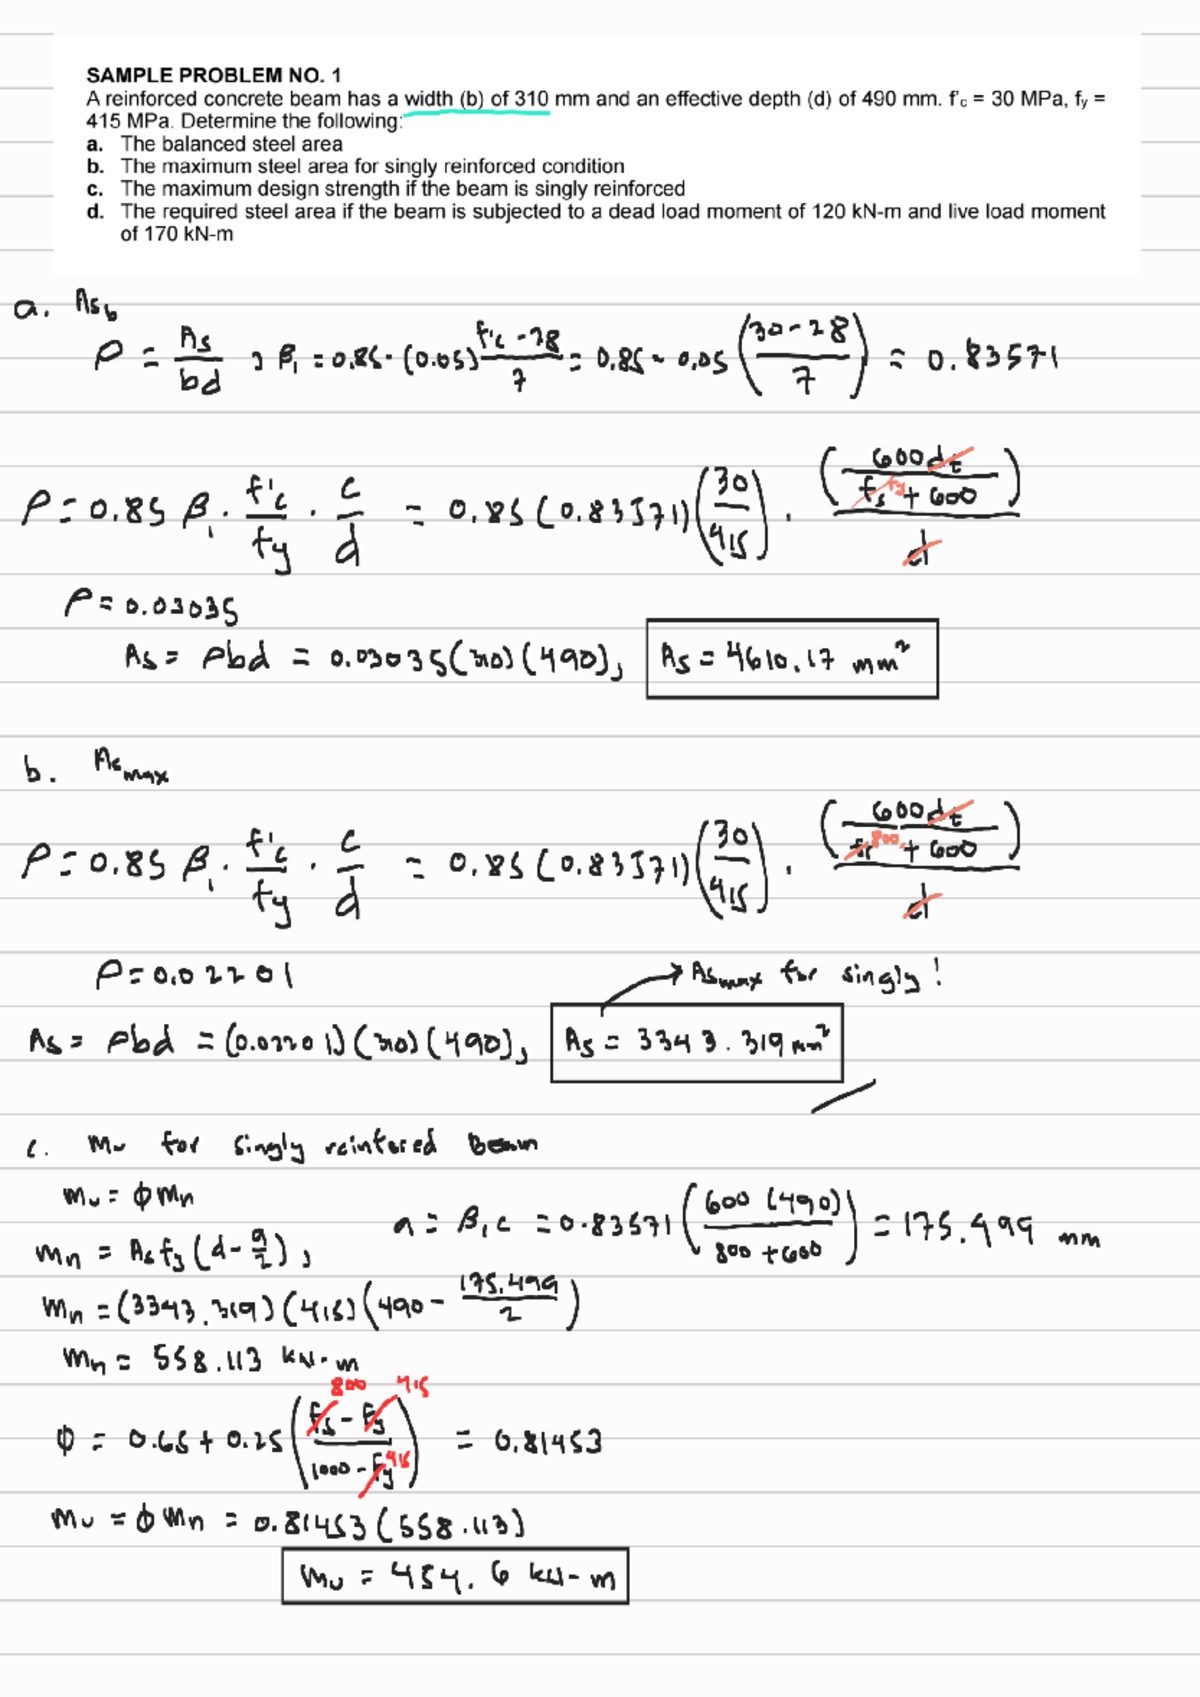 SAMPLE PROBLEM NO. 1
A reinforced concrete beam has a width (b) of 310 mm and an effective depth (d) of 490 mm. f'c = 30 MPa, fy =
415 MPa. Determine the following:
a. The balanced steel area
b. The maximum steel area for singly reinforced condition
c. The maximum design strength if the beam is singly reinforced
d. The required steel area if the beam is subjected to a dead load moment of 120 kN-m and live load moment
of 170 kN-m
a. Asb
ρ = As/bd ; β1 = 0.85 - (0.05) f'c - 28/7 = 0.85 - 0.05 (30 - 28/7) = 0.83571
ρ = 0.85 β1 · f'c/fy · c/d = 0.85 (0.83571) (30/415) · (600dt/fs fy + 600)/d
ρ = 0.03035
As = ρbd = 0.03035 (310) (490), As = 4610.17 mm²
b. Asmax
ρ = 0.85 β1 · f'c/fy · c/d = 0.85 (0.83571) (30/415) · (600dt/fs 800 + 600)/d
ρ = 0.02201
→ Asmax for singly!
As = ρbd = (0.02201) (310) (490), As = 3343.319 mm²
c. Mu for singly reinfored Beam
Mu = φMn
a = β1c = 0.83571 (600 (490)/800 + 600) = 175.499 mm
Mn = Asfy (d - a/2),
Mn = (3343.319) (415) (490 - 175.499/2)
Mn = 558.113 kN-m
800 415
φ = 0.65 + 0.25 (fs - fy/1000 - fy 415) = 0.81453
Mu = φMn = 0.81453 (558.113)
Mu = 454.6 kN-m